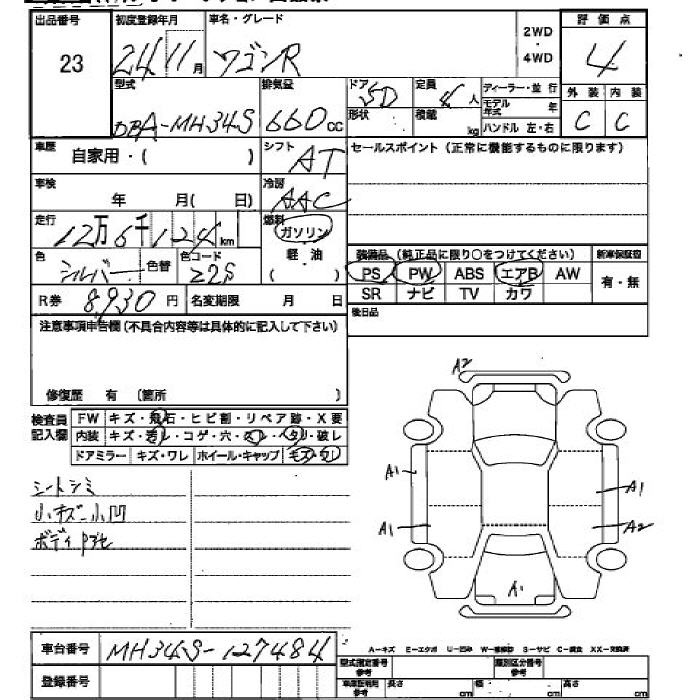 出品番号 初度登録年月 車名・グレード 2WD ・ 4WD 評価点
23 24 11月 ワゴンR 4
型式 排気量 ドア 形状 5D 定員 4人 積載 kg ディーラー・並行 モデル年式 年 ハンドル 左・右 外装 内装
DBA-MH34S 660cc C C
車歴 自家用・( ) シフト AT セールスポイント(正常に機能するものに限ります)
車検 年 月( 日) 冷房 AAC
走行 12万6千124km 燃料 ガソリン
軽・油
( )
色 シルバー 色替 色コード Z2S 装備品(純正品に限り○をつけてください) 新車保証書
PS PW ABS エアB AW 有・無
SR ナビ TV カワ
R券 8,930円 名変期限 月 日 後日品
注意事項申告欄(不具合内容等は具体的に記入して下さい)
修復歴 有 (箇所 )
検査員記入欄 FW キズ・飛石・ヒビ割・リペア跡・X要
内装 キズ・汚レ・コゲ・穴・スレ・ヘタリ・破レ
ドアミラー キズ・ワレ ホイール・キャップ キズ・ワレ
シートシミ
小キズ小凹
A2
A1
A1
A1
A2
A1
車台番号 MH34S-127484
登録番号
A-キズ E-エクボ U-凹み W-補修跡 S-サビ C-腐食 XX-交換済
型式指定番号 参考 類別区分番号 参考
車庫証明用 参考 長さ cm 幅 cm 高さ cm